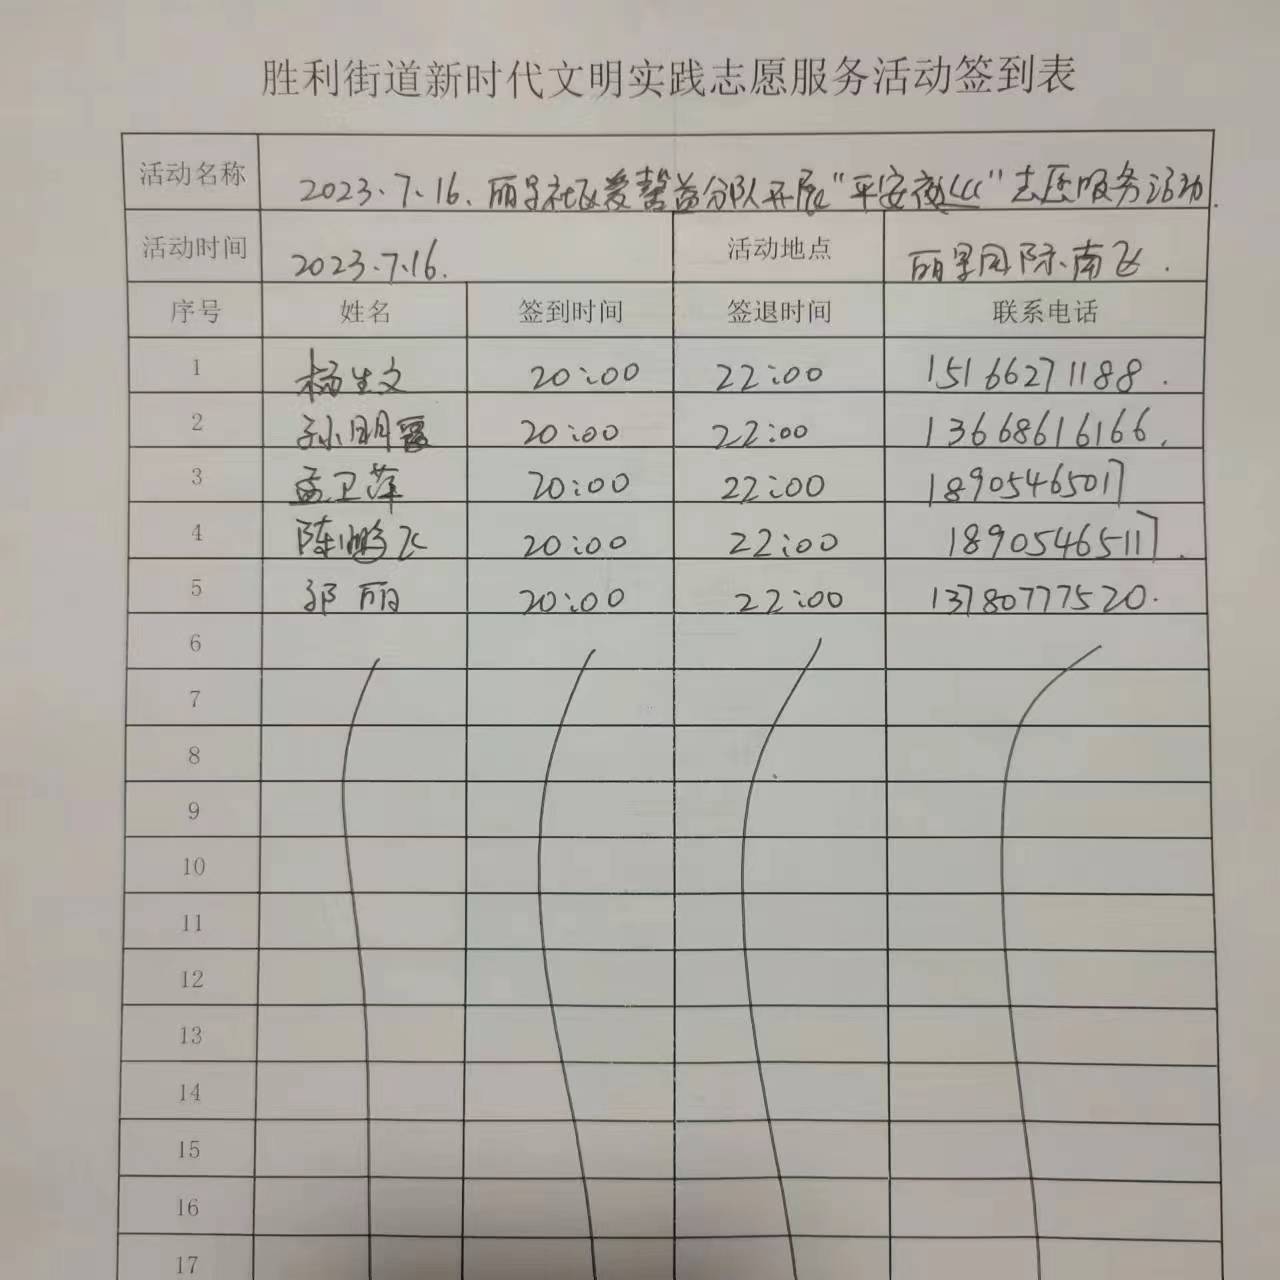 胜利街道新时代文明实践志愿服务活动签到表
活动名称 2023.7.16.丽景社区爱馨益分队开展"平安夜巡"志愿服务活动.
活动时间 2023.7.16. 活动地点 丽景国际.南飞.
序号 姓名 签到时间 签退时间 联系电话
1 杨生文 20:00 22:00 15166271188.
2 孙明霞 20:00 22:00 13668616166.
3 孟卫萍 20:00 22:00 18905465017
4 陈鹏飞 20:00 22:00 18905465117.
5 郭丽 20:00 22:00 13780777520.
6
7
8
9
10
11
12
13
14
15
16
17